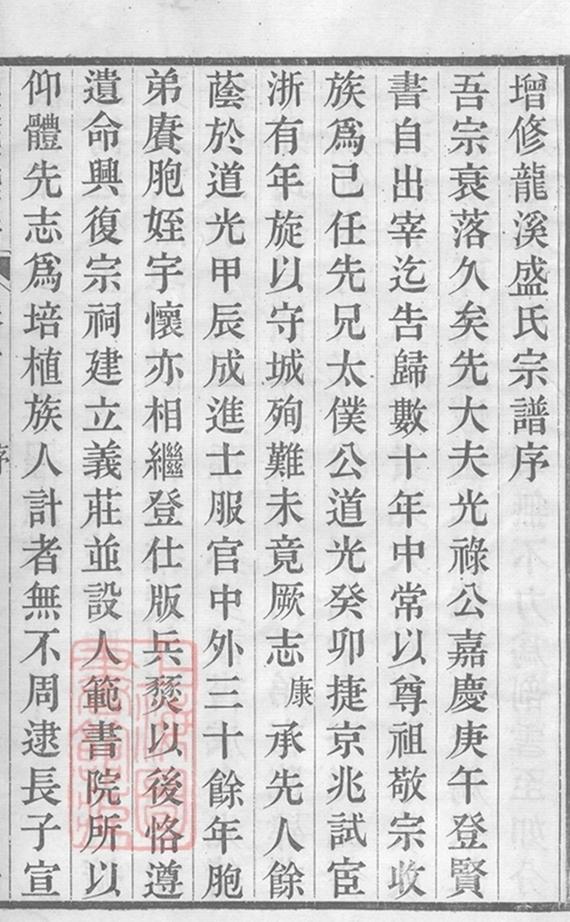 增修龍溪盛氏宗譜序
吾宗衰落久矣先大夫光祿公嘉慶庚午登賢
書自出宰迄告歸數十年中常以尊祖敬宗收
族爲己任先兄太僕公道光癸卯捷京兆試宦
浙有年旋以守城殉難未竟厥志康承先人餘
蔭於道光甲辰成進士服官中外三十餘年胞
弟賡胞姪宇懷亦相繼登仕版兵燹以後恪遵
遺命興復宗祠建立義莊並設人範書院所以
仰體先志爲培植族人計者無不周逮長子宣
序